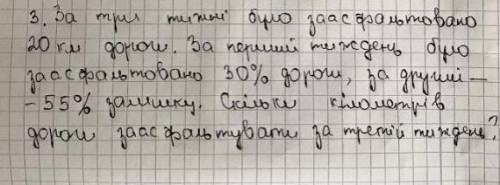 3. За три тижні було заасфальтовано
20 км дороги. За перший тиждень було
заасфальтовано 30% дороги, за другий —
- 55% залишку. Скільки кілометрів
дороги заасфальтували за третій тиждень?